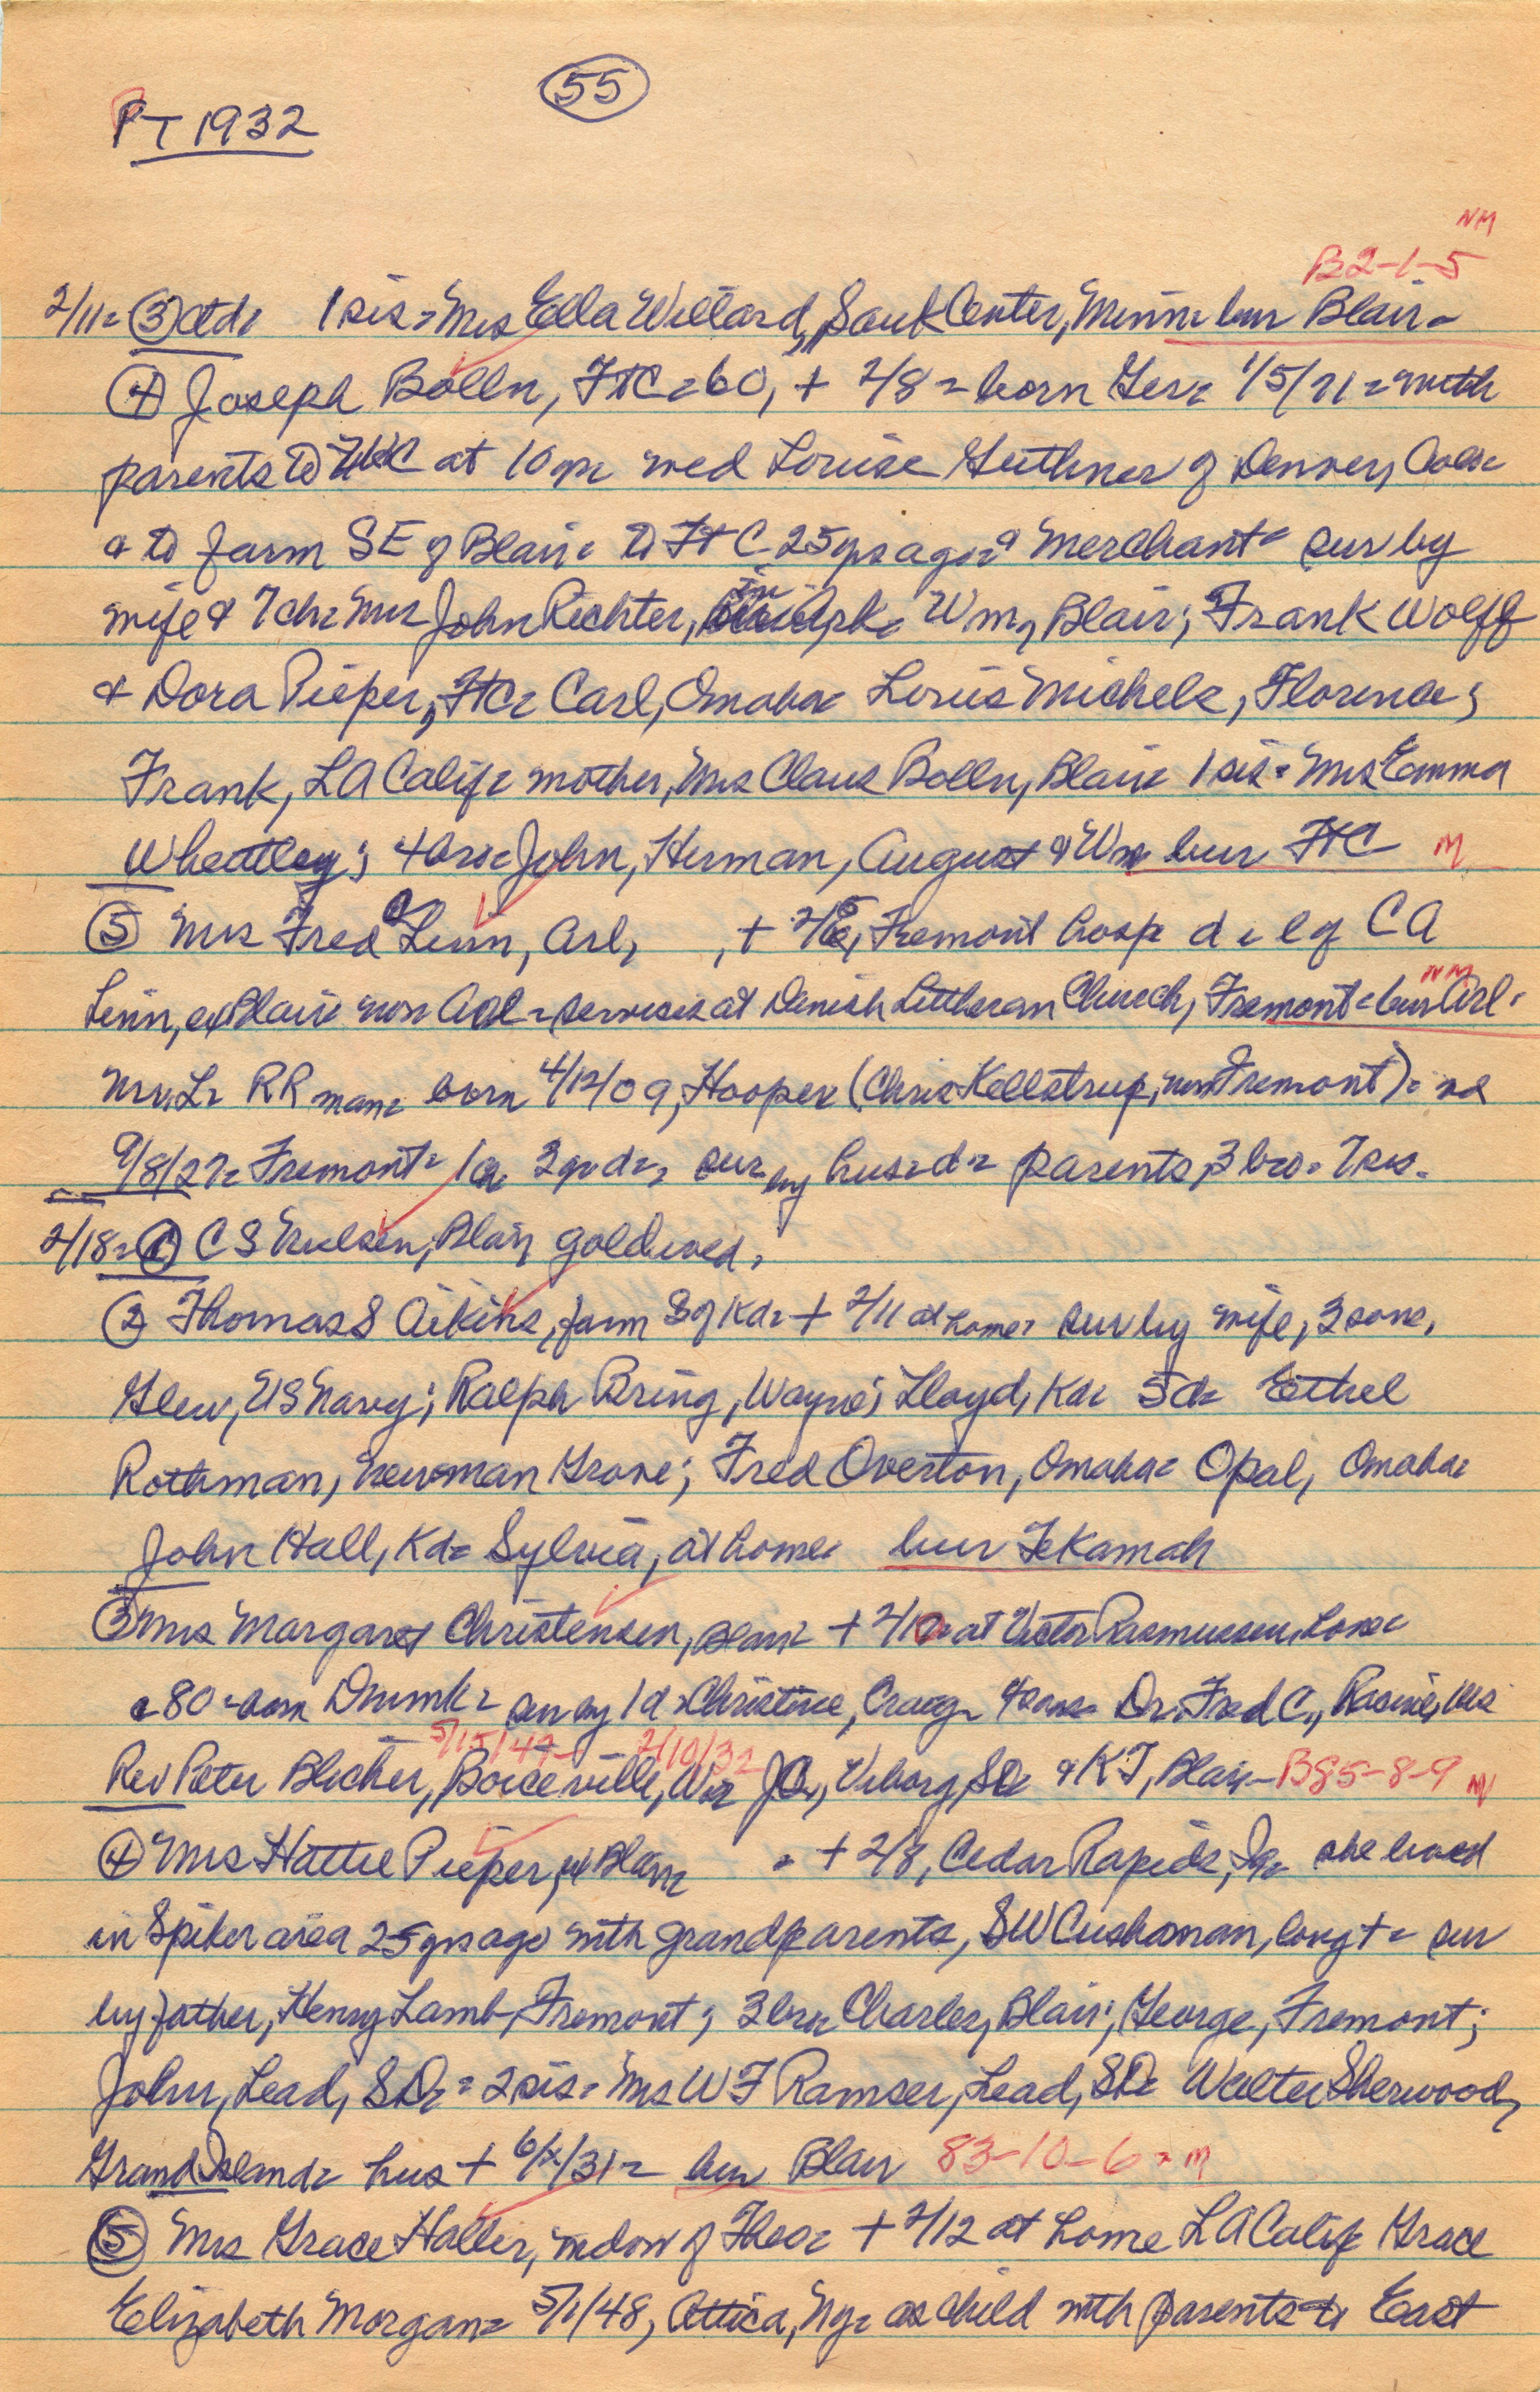 55
PT 1932
NM
B2-1-5
2/11= 3 ctd= 1 sis= Mrs Ella Willard, Sauk Center, Minn= bur Blair=
4 Joseph Bolln, FtC=60, + 2/8= born Ger= 1/5/71= with
parents to at 10 yr wed Louise Guthner of Denver, Colo=
& to farm SE of Blair= to FtC 25 yrs ago= merchant= sur by
wife & 7 ch= Mrs John Richter, in Ark= Wm, Blair; Frank Wolff
& Dora Pieper, FtC= Carl, Omaha= Louis Michels, Florence;
Frank, LA Calif= mother, Mrs Claus Bolln, Blair= 1 sis= Mrs Emma
Wheatley; 4 bro= John, Herman, August & Wm bur FtC M
5 Mrs Fred C Linn, Arl, , + 2/6, Fremont hosp d i l of CA
Linn, ex Blair now Arl= services at Danish Lutheran Church, Fremont= bur Arl= NM
Mr. L= RR man= born 4/12/09, Hooper (Chris Kellstrup, now Fremont)= md
9/8/27= Fremont= 3 yr d=, sur by hus= d= parents, 3 bro= 7 sis=
2/18= 1 CS Nielsen, Blair, gold wed=
2 Thomas S Aikins, farm S of Kd= + 2/11 at home= sur by wife, 3 sons,
Glen, US Navy; Ralph Bring, Wayne; Lloyd, Kd= 5 d= Ethel
Rothman, Newman Grove; Fred Overton, Omaha= Opal, Omaha=
John Hall, Kd= Sylvia, at home= bur Tekamah
3 Mrs Margaret Christensen, Blair= + 2/10= at Victor Rasmussen home
a 80= born Dnmk= sur by 1 d= Christine, Craig= 4 sons= Dr. Fred C., Racine, Wis
5/15/47 2/10/32
Rev Peter Blicher, Boiceville, Wis= , Viborg, SD= & KJ, Blair= B85-8-9 M
4 Mrs Hattie Pieper, ex Blair = + 2/8, Cedar Rapids, Ia= she lived
in Spiker area 25 yrs ago with grandparents, SW Cushman, long + = sur
by father, Henry Lamb, Fremont; 3 bro= Charles, Blair; George, Fremont;
John, Lead, SD= = 2 sis= Mrs WF Ramser, Lead, SD= Walter Sherwood,
Grand Island= hus + 31= bur Blair 83-10-6= M
5 Mrs Grace Haller, widow of Theo= + 2/12 at home LA Calif Grace
Elizabeth Morgan= 5/1/48, Attica, Ny= as child with parents to East